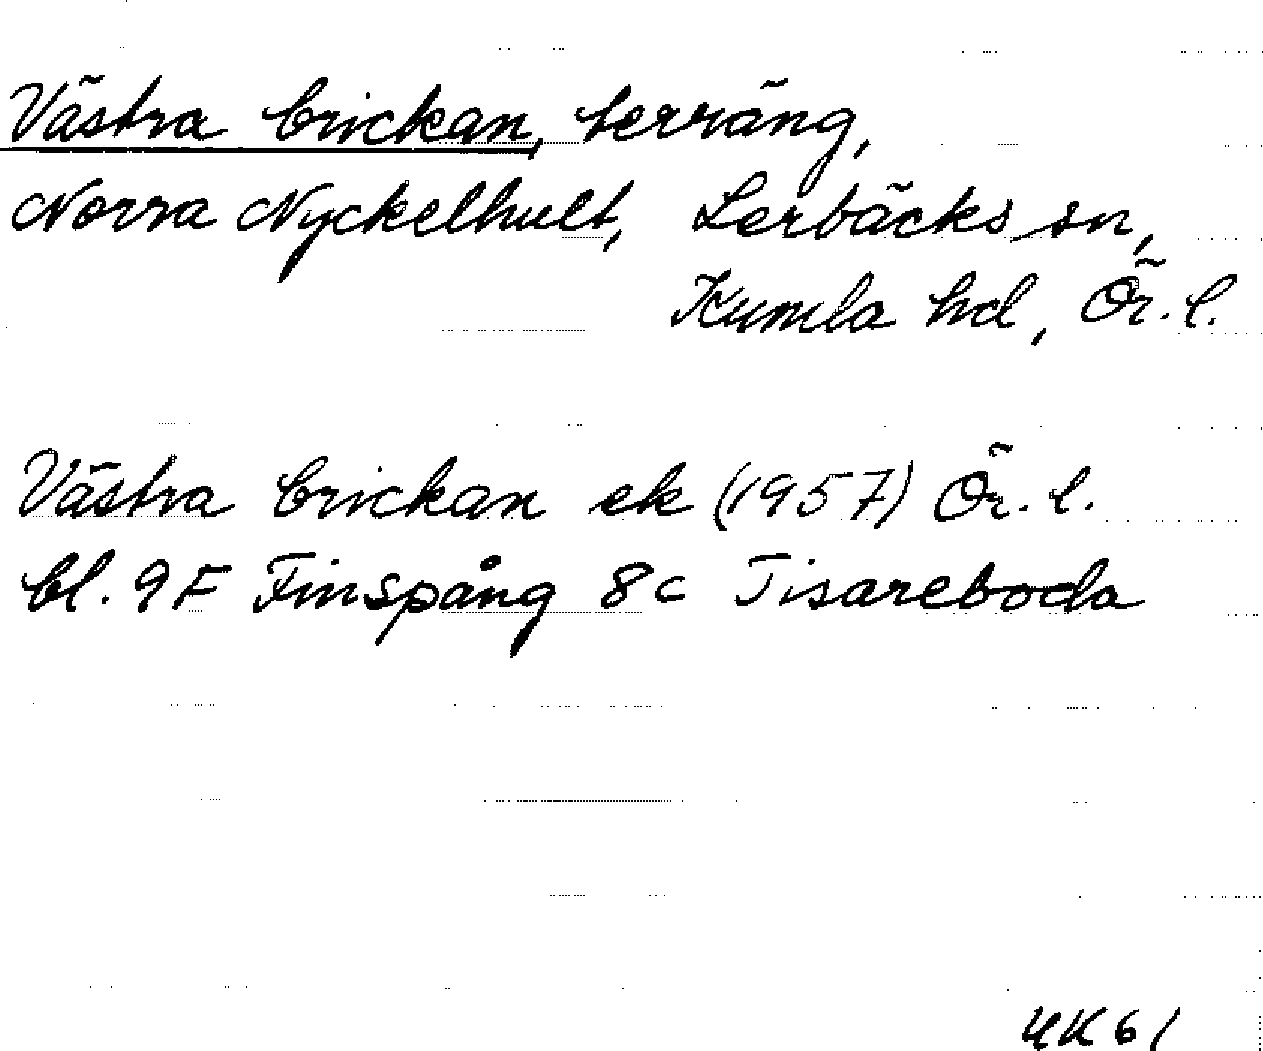 Västra brickan, terräng,
Norra Nyckelhult, Lerbäcks sn,
Kumla hd, Ör. l.
Västra brickan ek (1957) Ör. l.
bl. 9F Finspång 8c Tisareboda
UK 61